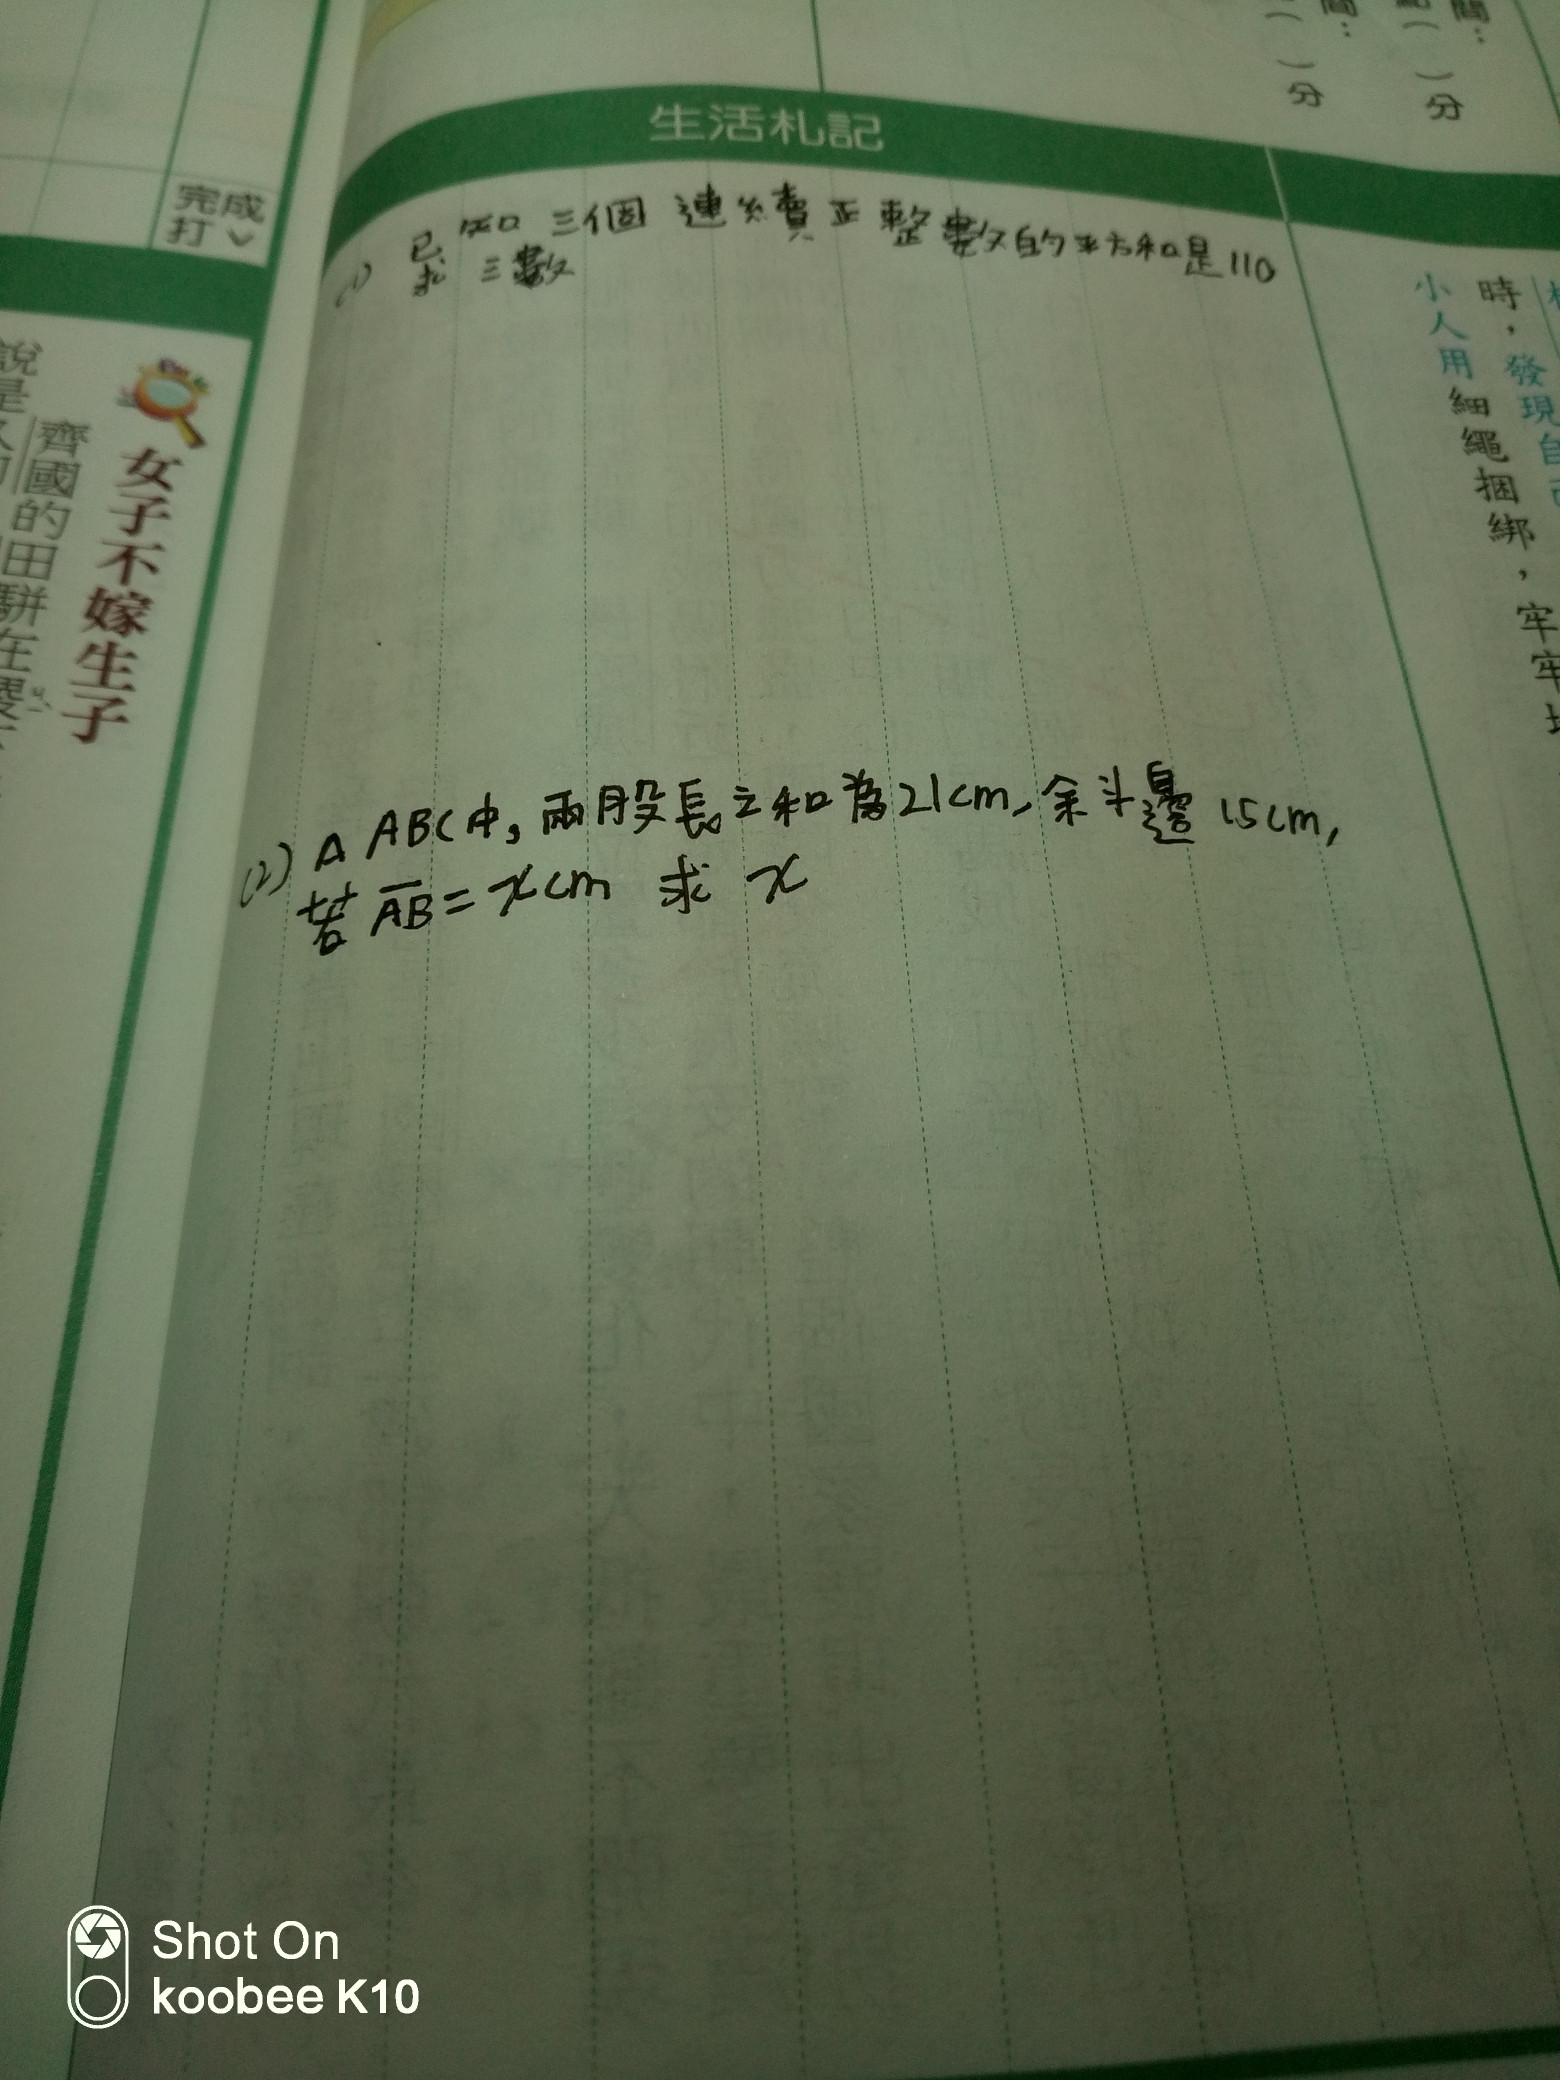 間：
間：
點（　）分
（　）分
生活札記
完成
打∨
(1) 已知三個連續正整數的平方和是110
求三數
小人用細繩捆綁，牢牢
時，發現自
女子不嫁生子
齊國的田駢在
說是
(2) △ABC中,兩股長之和為21cm,斜邊15cm,
若AB=xcm 求x
Shot On
koobee K10